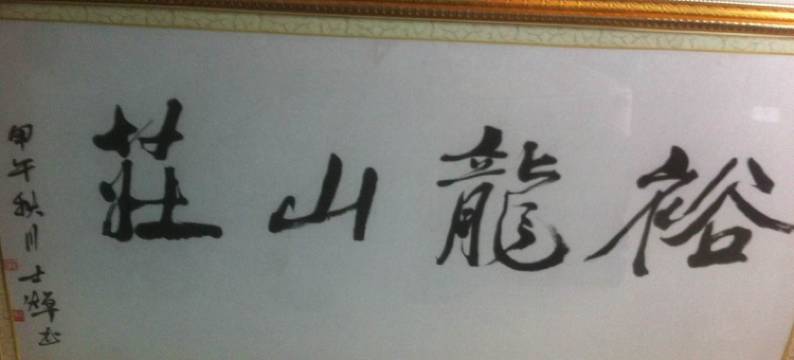 裕龍山莊
甲午秋月士焯書